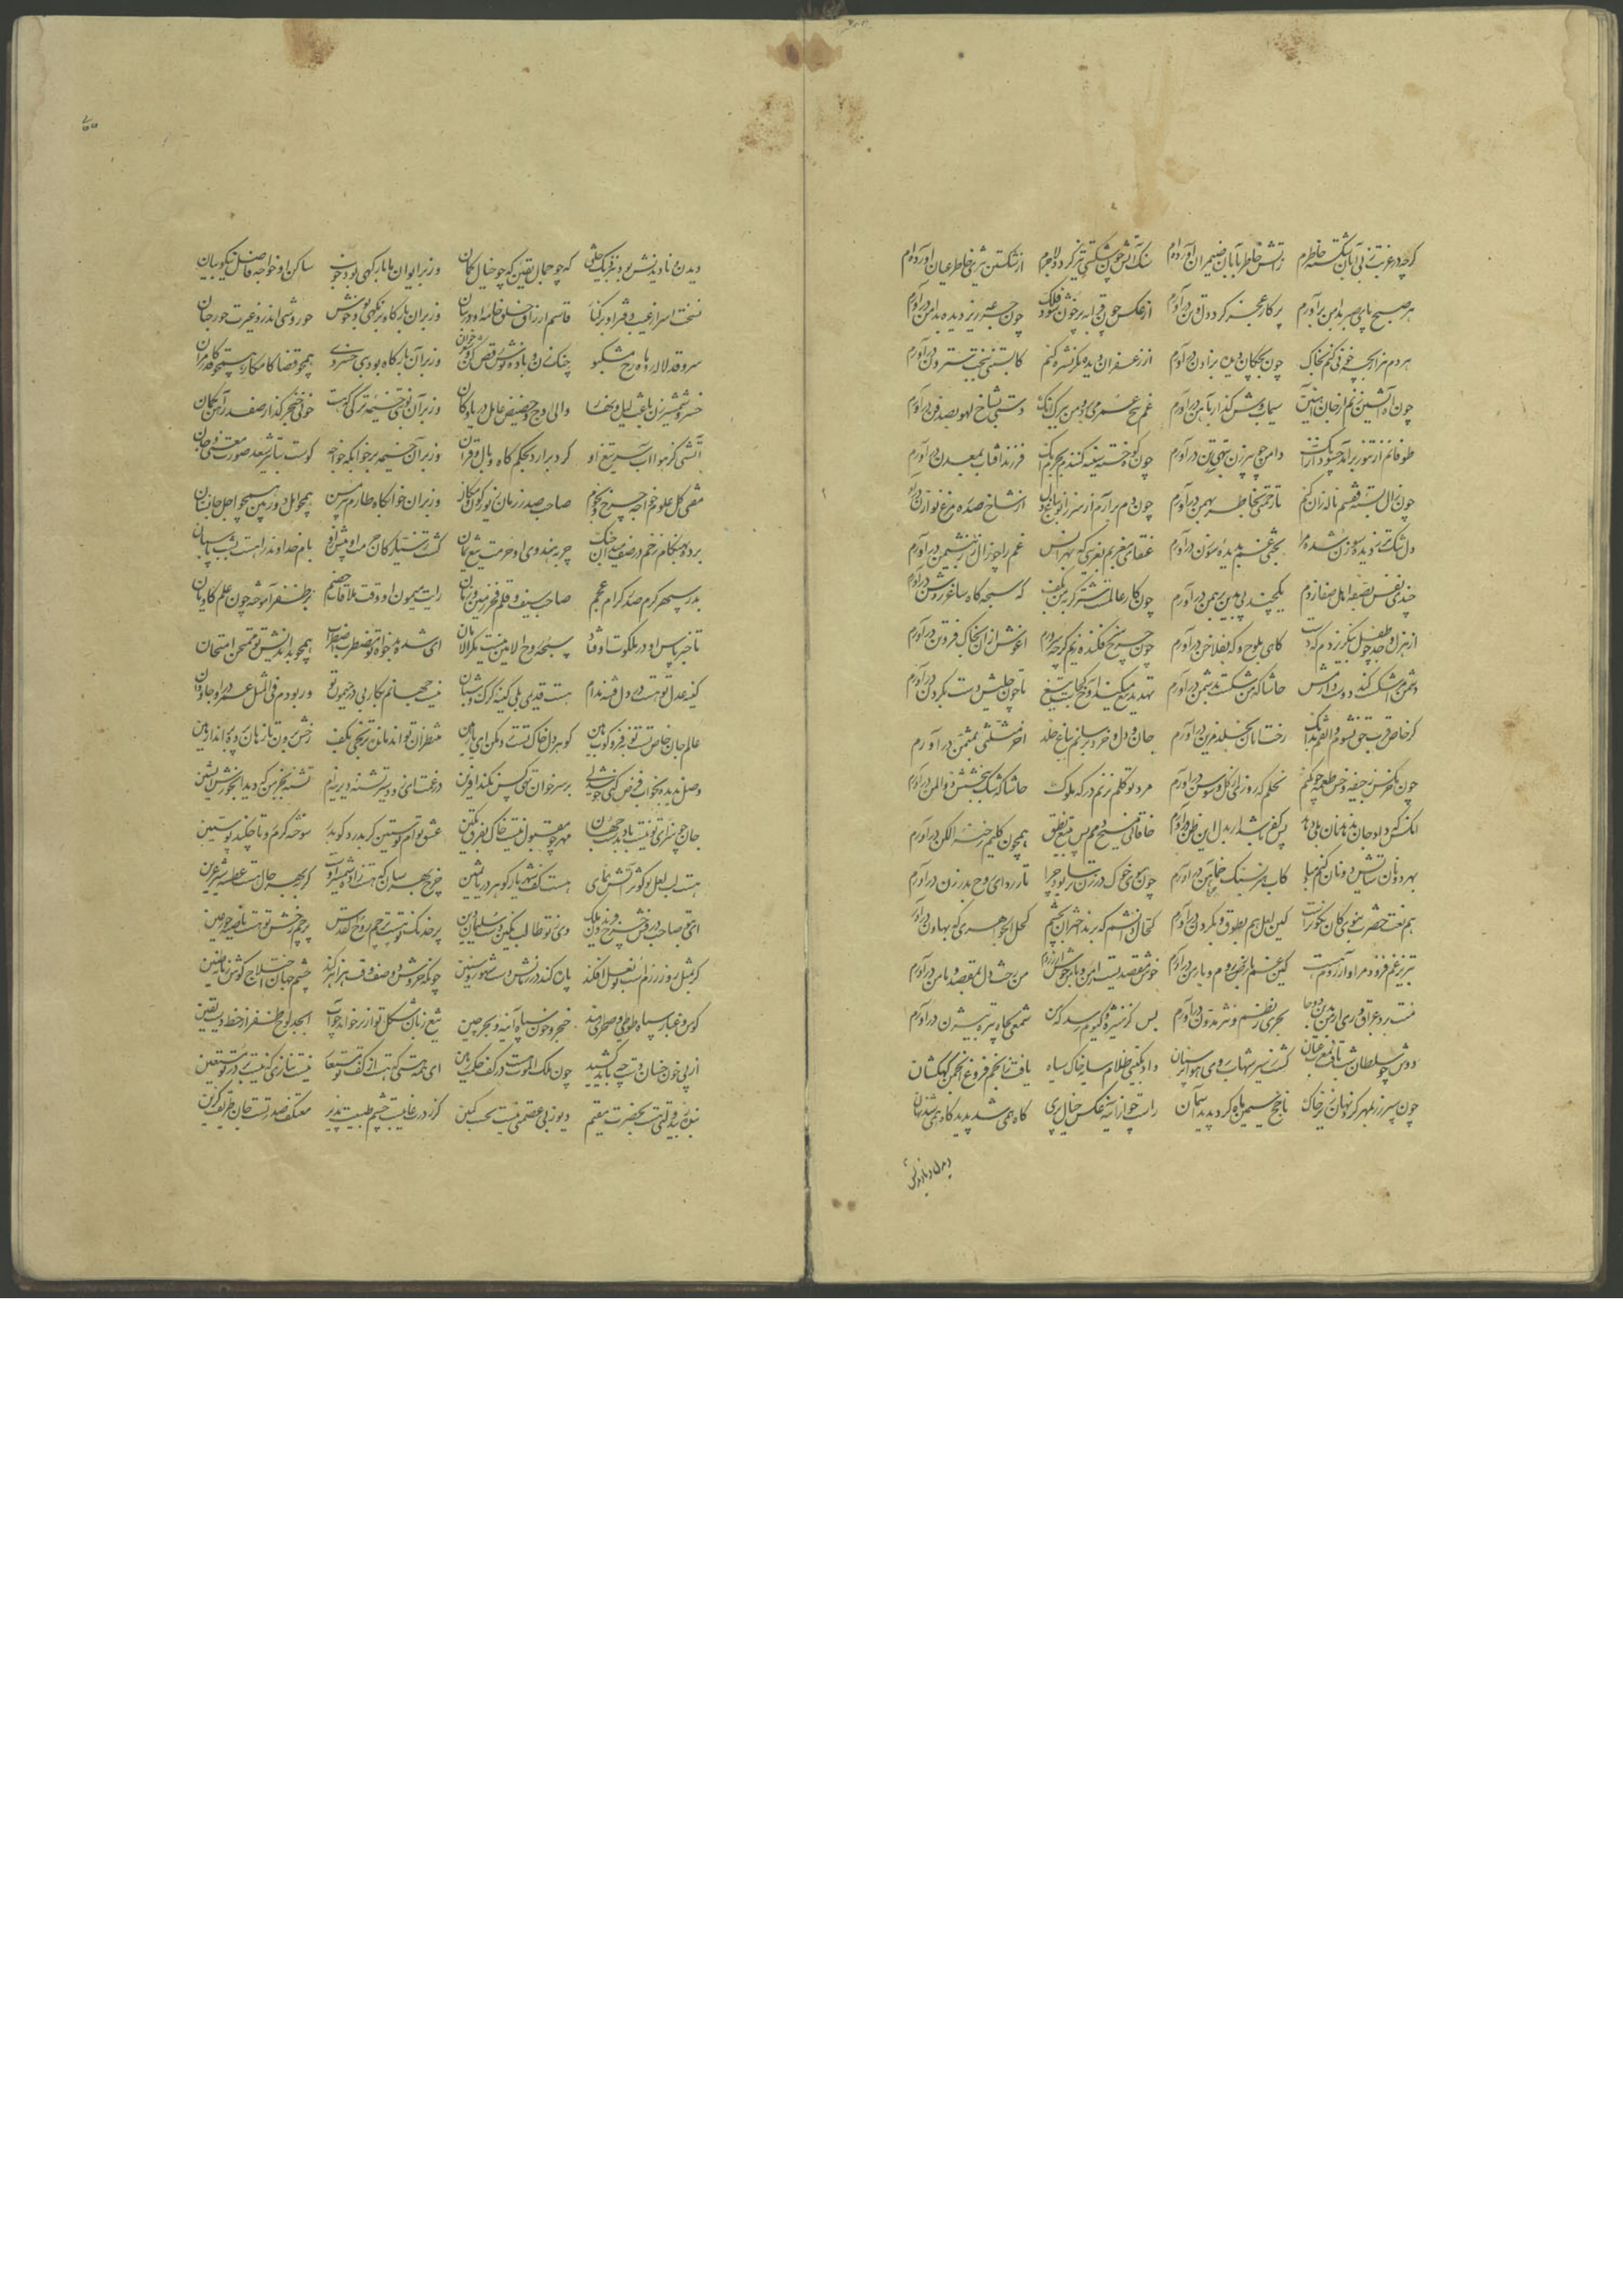 کرچه در غربت ز بی آبان شکسته خاطرم ز آتش خاطر بآبان ضیمران آورده‌ام سنک آتش چون شکستی تیز کردد لاجرم از شکستن تیزی خاطر عیان آورده‌ام
هر صبح پای صبر بدامن برآورم پرکار عجز کرد دل و تن درآورم از عکس خون قرابه پر خون شود فلک چون جرعه ریز دیده بدامن درآورم
هردم هزار بچه خونی کنم بخاک چون بختکان دیده بزادن درآورم از زعفران دیده مکر نشره کنم کابستنی ببخت سترون درآورم
چون آه آتشین زنم از جان آهنین سیماب وش کداز بآهن درآورم غم بیخ عمر می‌برد و من ببرک آنک دستی بشاخ لهو بصد فن درآورم
طوفانم از تنور برآمد چه سود از آنک دامن چو پیرزن بنهنبن درآورم چون کوه خسته سینه کنندم بجرم آنک فرزند آفتاب بمعدن درآورم
چون زال بسته قفسم ناله زان کنم تا رحمتی بخاطر بهمن درآورم چون دم برآرم از سر زانو بباغ دل از شاخ سدره مرغ نوازن درآورم
دل تنک‌تر ز دیده سوزن شدست مرا بختی غم بدیده سوزن درآورم عنقای مغربم بغریبی که بهر انس غم را چو زال زر بنشیمن درآورم
چندی نفس بصفه اهل صفا زدم یکچند پی بدیر برهمن درآورم چون کار عالمست شتر کربه من بکف که سبحه کاه ساغر روشن درآورم
از هزل و جد چو طفل بنکزیردم که دست کاهی بلوح و که بفلاخن درآورم چون چرخ سر فکنده زیم کرچه سرورم آغوش از آن بخاک فروتن درآورم
دشمن مرا شکسته کند دوست دارمش حاشا که من شکست بدشمن درآورم تهدید تیغ میکند آوخ کجاست تیغ تا چون حلیش دست بکردن درآورم
کر خاص قرب حق نشوم واثقم بدانک رخت امان بخلد مزین درآورم جان و دل و خرد برسانم بباغ خلد آخر مثلثی بمثمن درآورم
چون کرکس ز جیفه و خس طعمه چون کنم نحلم که روزی از کل و سوسن درآورم مرد توکلم نزنم درکه ملوک حاشا که شک ببخشش ذوالمن درآورم
آنکس که داد جان ندهد نان بلی دهد پس کفر باشد ار بدل این ظن درآورم خاقانی مسیح دمم پس بتیغ نطق همچون کلیم رخنه در الکن درآورم
بهر دو نان ستایش دونان کنم مباد کاب کهر بسنک خماهن درآورم چون موی خوک در زن ترسا بود چرا تار ردای روح بدرزن درآورم
هم نعت حضرت نبوی کان نکوتر است کاین لعل هم بطوق و بکرزن درآورم کحال دانشم که برند اختران بچشم کحل الجواهری که بهاون درآورم
تبریز غم فزود مرا آرزوم هست کاین غم بارض روم و بارمن درآورم خوش مقصدیست ارمن و ارمن خوش من رخش دل بمقصد و مأمن درآورم
منت برد عراق و ری از من بدین دو جا بحری ز نظم و نثر مدون درآورم بس کز منیژه کیوم رسد که من شمعی بچاه تیره بیژن درآورم
دوش چو سلطان شب تافته شد بر عنان کشت ز تیر شهاب روی هوا پر سنان داد بکیتی ظلام سایه خاک سیاه یافت ز انجم فروغ انجمن کهکشان
چون سپر زر مهر کشت نهان زیر خاک ناخج سیمین ماه کرد پدید آسمان راست چو از آینه عکس خیال پری کاه همی شد پدید کاه همی شد نهان
دیدن و نادیدنش
دیدن و نادیدنش بود بنزدیک خلق که چو جمال یقین که چو خیال کمان وز بر ایوان ماه بارکهی بود خوب ساکن او خواجه فاضل نیکو بیان
نسخت اسرار غیب دفتر او بر کنار قاسم ارزاق خلق خامه او در بنان وز بر آن بارکاه بزمکهی بود خوش حوروشی اندرو غیرت حور جنان
سرو قد لاله رو ماه رخ مشکبو چنک زن و باده نوش رقص کن و شعر خوان وز بر آن بزمکاه بود یکی خسروی همچو قضا کامکار همچو قدر کامران
خسرو شمشیرزن باعث لیل و نهار والی اوج و حضیض عامل دریا و کان وز بر آن نوبتی خیمه ترکی که هست خونی خنجر کذار صفدر آهن کمان
آتشی کز هوا آب سر تیغ او کرد برآرد بحکم کاه وبال و قران وز بر آن خیمه بد خوابکه خواجه کوست بتأثیر سعد صورت معنی و جان
مفتی کل علوم خواجه چرخ و نجوم صاحب صدر زمان زیور کون و مکان وز بر آن خوابکاه طارم پیری مسن همچو امل دوربین همچو اجل جانستان
بام خداوند راست بشب پاسبان
بدر سپهر کرم صدر کرام عجم صاحب سیف و قلم فخر زمین و زمان رایت میمون او وقت ملاقات خصم
تا خبر پاس او در ملکوت اوفتاد سبحه روح الامین نیست مکر الامان ای شده بدخواه تو مضطرب از اضطراب همچو بداندیش تو ممتحن امتحان
کینه عدل تو هست در دل فتنه مدام هست قدیمی بلی کینه کرک و شبان نیست جهانم بکار بی در میمون تو ور بودم فی المثل عمر درو جاودان
عالم جان خاص تست نوبه فرو کوب هین کوهر دل خاک تست رخنه مکن ای نازنین منتظران تواند مانده ترنجی بکف رخش برون تاز هان پرده برانداز هین
وصل ندیده بخواب فرض کنی خوشدلی بر سر خوان تهی کس نکند آفرین
جان چو سزای تو نیست باد بدست جهان مهر چو مقبول نیست خاک بفرق نکین عشق تو ام پوستین کر بدرد کو بدر سوخته کرم رو تا چکند پوستین
هست لب لعل تو کوثر آتش نمای هست کف شهریار کوهر دریا یمین چرخ بهر سان که هست زاده شمشیر اوست کر بهر حال هست عطسه شیر عرین
ای بتو صاحب درفش خسرو و فریدون ملک وی ز تو طالب نکین دست سلیمان دین پر خدنک تو هست شهپر روح القدس پرچم رخش تو هست ناصیه حور عین
کر بمثل روز رزم رخش تو نعل افکند یاره کند در زمانش دست شهور و سنین چونکه خروش دو صف وقت هزاهز کند چشم جهان اختلاج کوش زمانه طنین
کوس و غبار سپاه طوطی و صحرای هند خنجر و خون سیاه آینه و بحر چین تیغ زبان شکل تو از بر خواند چو آب ابجد لوح ظفر از خط دست یقین
از پی خون خسان تیغ چه باید کشید چون ملک الموت هست در کف حکمت رهین ای همه هستی که هست از کف تو مستعار نیست نیازی که نیست بر در تو مستعین
بنده ز بی دولتی نیست بحضرت مقیم دیو ز بی عصمتی نیست بجنت مکین کر ز درت غایبست جسم طبیعت پذیر معتکف صدر تست جان طریقت کزین